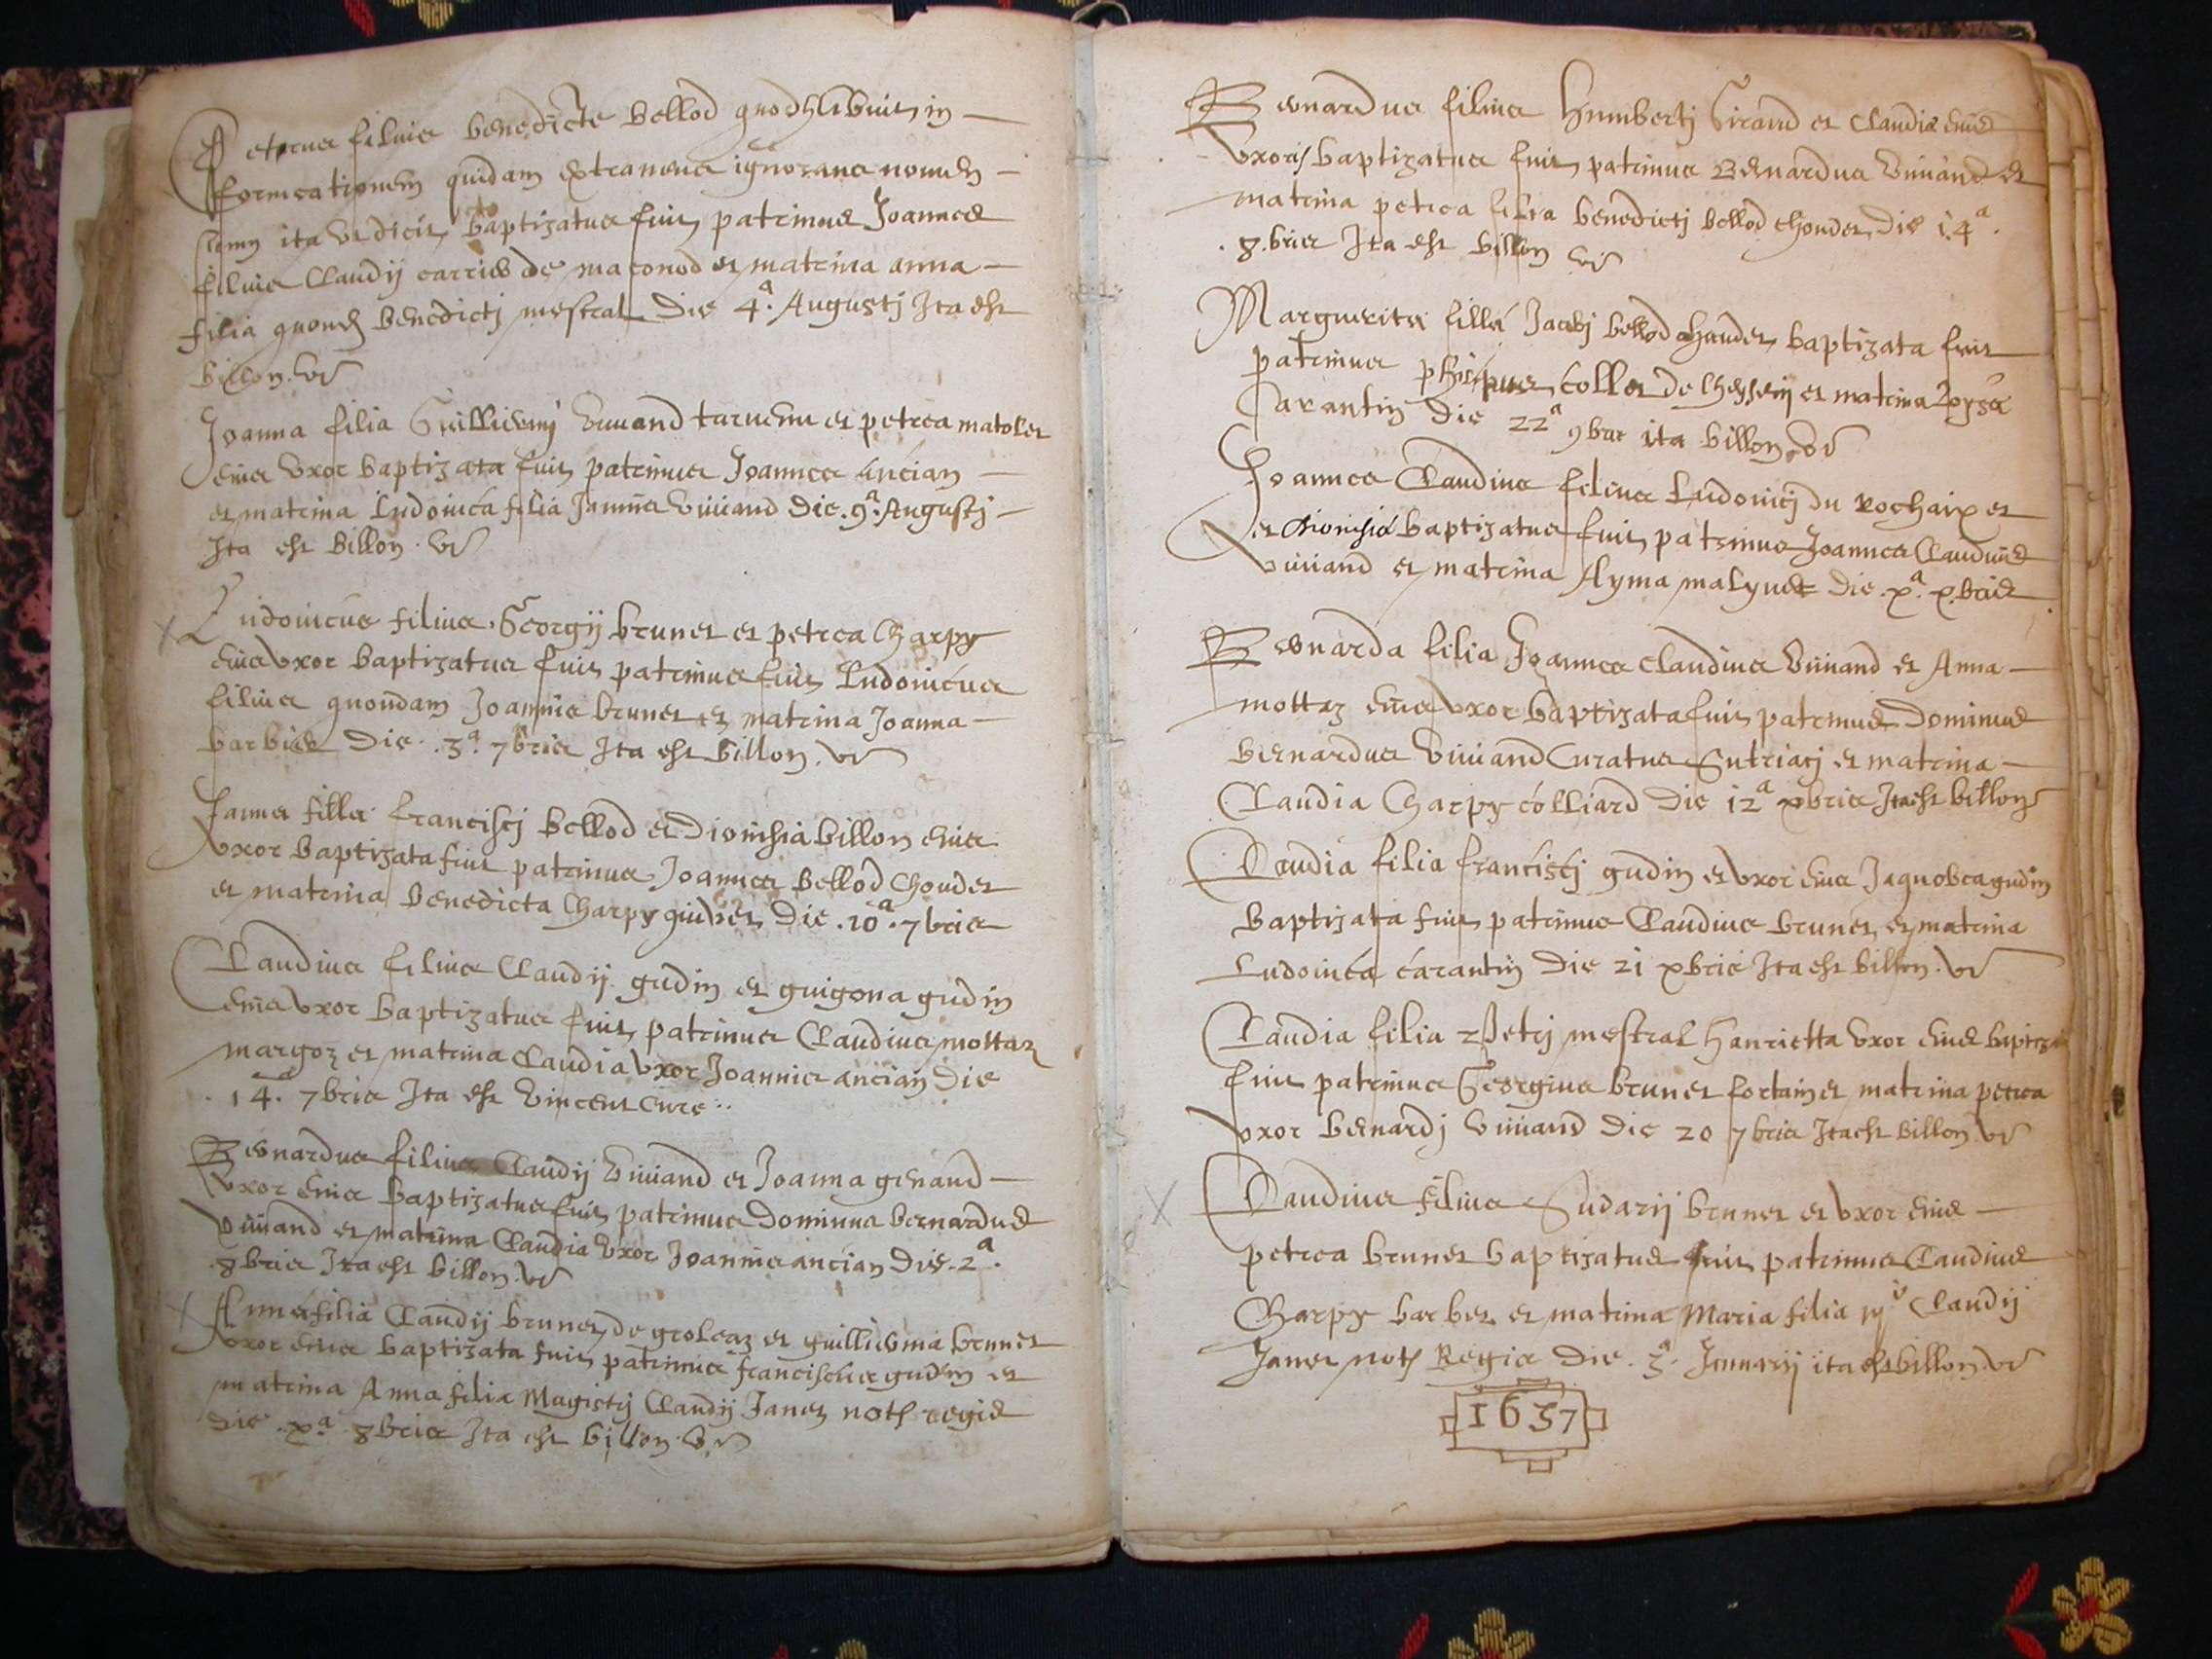 Petrus filius benedicte Bellod quod habuit in
fornicationem quidam extraneus ignorans nomen
suum ita ut dicit, baptizatus fuit patrinus Joannes
filius Claudij carrier de maconod et matrina anna
filia quond benedictj mestral die 4ª Augustj Ita est
billon vr
Joanna filia Guilliermj Viuand taruenu et petrea matolet
eius uxor baptizata fuit patrinus Joannes ancian
et matrina Ludouica filia Joannis Viuiand die 9ª Augustj
Ita est billon vr
Ludouicus filius Georgij brunet et petrea Charpy
eius uxor baptizatus fuit patrinus fuit Ludouicus
filius quondam Joannis brunet et matrina Joanna
barbier die 3ª 7bris Ita est billon vr
Janna filla franciscj bellod et Dionisia billon eius
uxor baptizata fuit patrinus Joannes bellod Choudet
et matrina benedicta Charpy die 10ª 7bris
Claudius filius Claudij gudin et guigona gudin
eius uxor baptizatus fuit patrinus Claudius mottaz
margoz et matrina Claudia uxor Joannis ancian die
14ª 7bris Ita est Vincent Cure
Bernardus filius Claudij Viuiand et Joanna girand
uxor eius baptizatus fuit patrinus Dominus bernardus
Viuiand et matrina Claudia uxor Joannis ancian die 2ª
8bris Ita est billon vr
Anna filia Claudij brunet de groleaz et guillierma brunet
uxor eius baptizata fuit patrinus franciscus gudin et
matrina Anna filia Magistrj Claudij Janet not regis
die xª 8bris Ita est billon vr
Bernardus filius Humbertj Girand et Claudia eius
uxoris baptizatus fuit patrinus Bernardus Viuiand et
matrina petrea filia benedictj bellod choudet die 14ª
8bris Ita est billon vr
Marguerita filla Jacobj bellod chaudet baptizata fuit
patrinus collet de Cheyserij et matrina Loysa
Carantin die 22ª 9bris ita billon vr
Joannes Claudius filius Ludouicj du Rochaix et
et Dionisia baptizatus fuit patrinus Joannes Claudius
Viuiand et matrina Ayma malynet die xª xbris
Bernarda filia Joannes Claudius Viuiand et Anna
mottaz eius uxor baptizata fuit patrinus Dominus
bernardus Viuiand Curatus Sutriacj et matrina
Claudia Charpy colliard die 12ª xbris Ita est billon
Claudia filia franciscj gudin et uxor eius Jaquobea gudin
baptizata fuit patrinus Claudius brunet et matrina
Ludouica carantin die 21 xbris Ita est billon vr
Claudia filia Petrj mestral Hanrietta uxor eius baptiza
fuit patrinus Georgius brunet fortain et matrina petrea
uxor bernardj Viuiand die 20 7bris Ita est billon vr
Claudius filius Sudarij brunet et uxor eius
petrea brunet baptizatus fuit patrinus Claudius
Charpy barbet et matrina Maria filia Claudij
Janet not Regis die 3ª Januarij ita est billon vr
1637